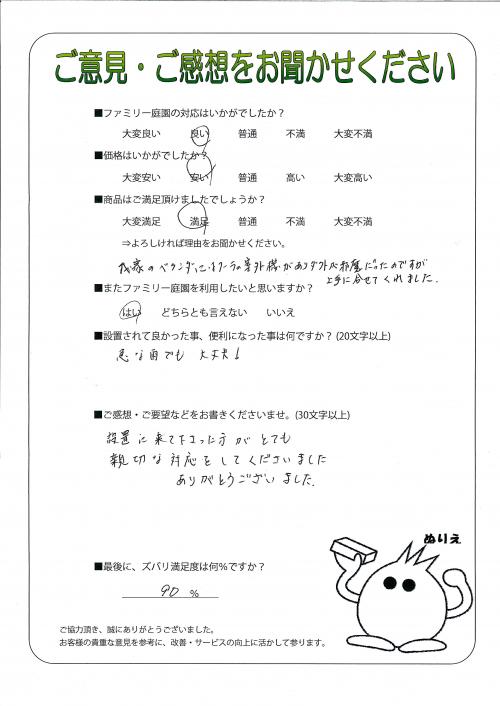 ご意見・ご感想をお聞かせください
■ファミリー庭園の対応はいかがでしたか？
大変良い 良い 普通 不満 大変不満
■価格はいかがでしたか？
大変安い 安い 普通 高い 大変高い
■商品はご満足頂けましたでしょうか？
大変満足 満足 普通 不満 大変不満
⇒よろしければ理由をお聞かせください。
我家のベランダにはクーラーの室外機がありダクトが邪魔だったのですが
上手に合せてくれました。
■またファミリー庭園を利用したいと思いますか？
はい どちらとも言えない いいえ
■設置されて良かった事、便利になった事は何ですか？(20文字以上)
急な雨でも 大丈夫！
■ご感想・ご要望などをお書きくださいませ。(30文字以上)
設置に来て下さった方がとても
親切な対応をしてくださいました
ありがとうございました。
ぬりえ
■最後に、ズバリ満足度は何％ですか？
90 ％
ご協力頂き、誠にありがとうございました。
お客様の貴重な意見を参考に、改善・サービスの向上に活かして参ります。